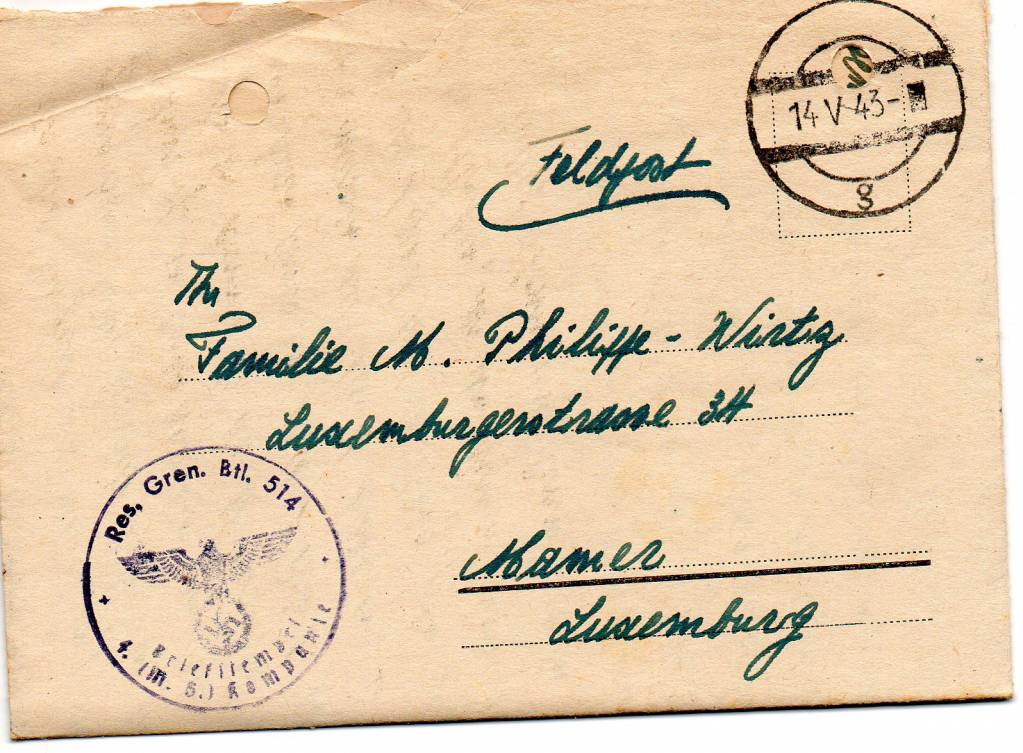 14 V 43-
g
Feldpost
An
Familie M. Philippe-Wirtz
Luxemburgerstrasse 34
Mamer
Luxemburg
Res. Gren. Btl. 514
Briefstempel
4. (M. G.) Kompanie